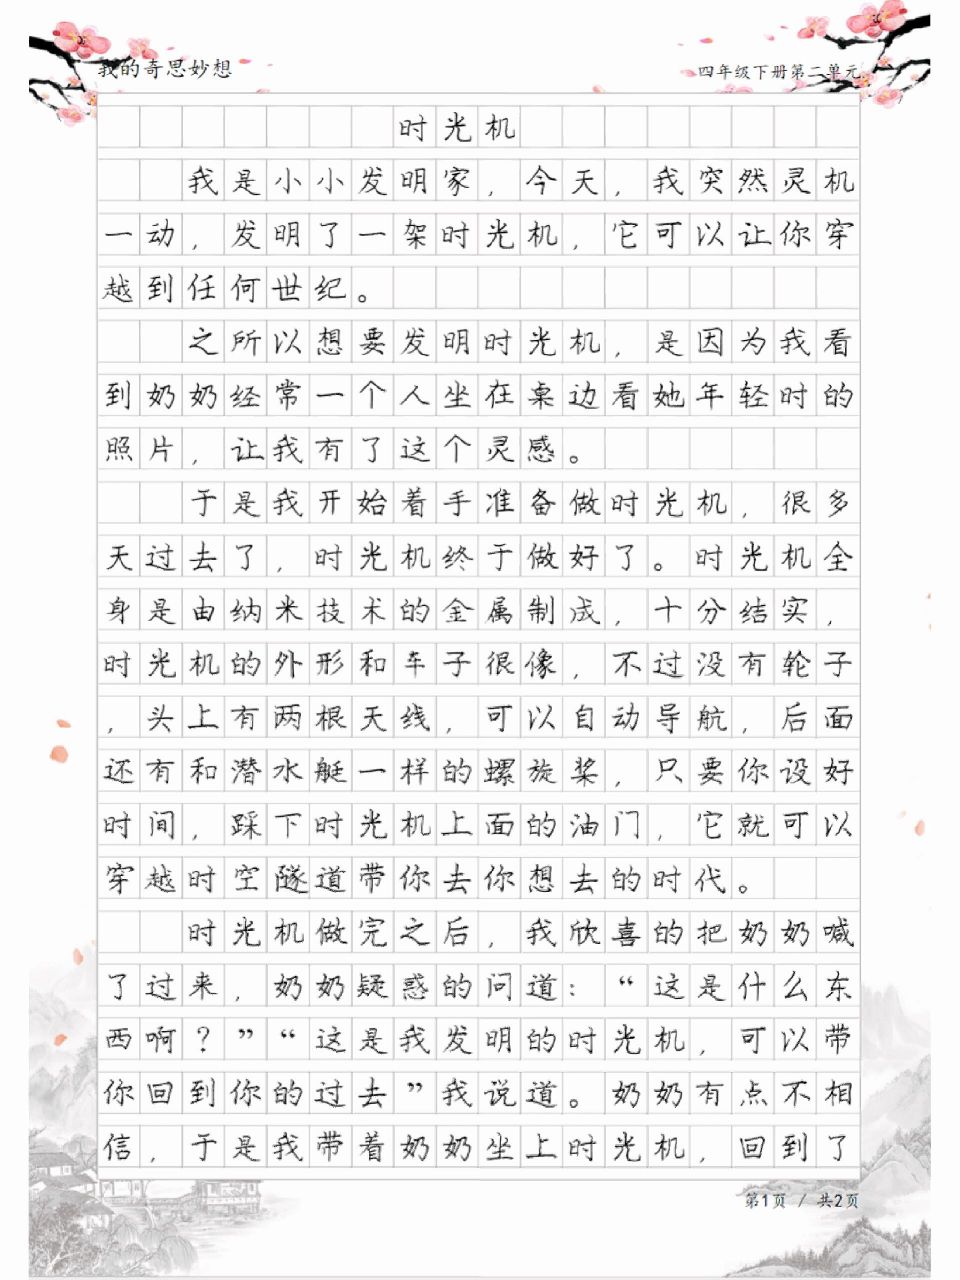 我的奇思妙想
四年级下册第二单元
时光机
我是小小发明家，今天，我突然灵机
一动，发明了一架时光机，它可以让你穿
越到任何世纪。
之所以想要发明时光机，是因为我看
到奶奶经常一个人坐在桌边看她年轻时的
照片，让我有了这个灵感。
于是我开始着手准备做时光机，很多
天过去了，时光机终于做好了。时光机全
身是由纳米技术的金属制成，十分结实，
时光机的外形和车子很像，不过没有轮子
，头上有两根天线，可以自动导航，后面
还有和潜水艇一样的螺旋桨，只要你设好
时间，踩下时光机上面的油门，它就可以
穿越时空隧道带你去你想去的时代。
时光机做完之后，我欣喜的把奶奶喊
了过来，奶奶疑惑的问道：“这是什么东
西啊？”“这是我发明的时光机，可以带
你回到你的过去”我说道。奶奶有点不相
信，于是我带着奶奶坐上时光机，回到了
第1页 / 共2页